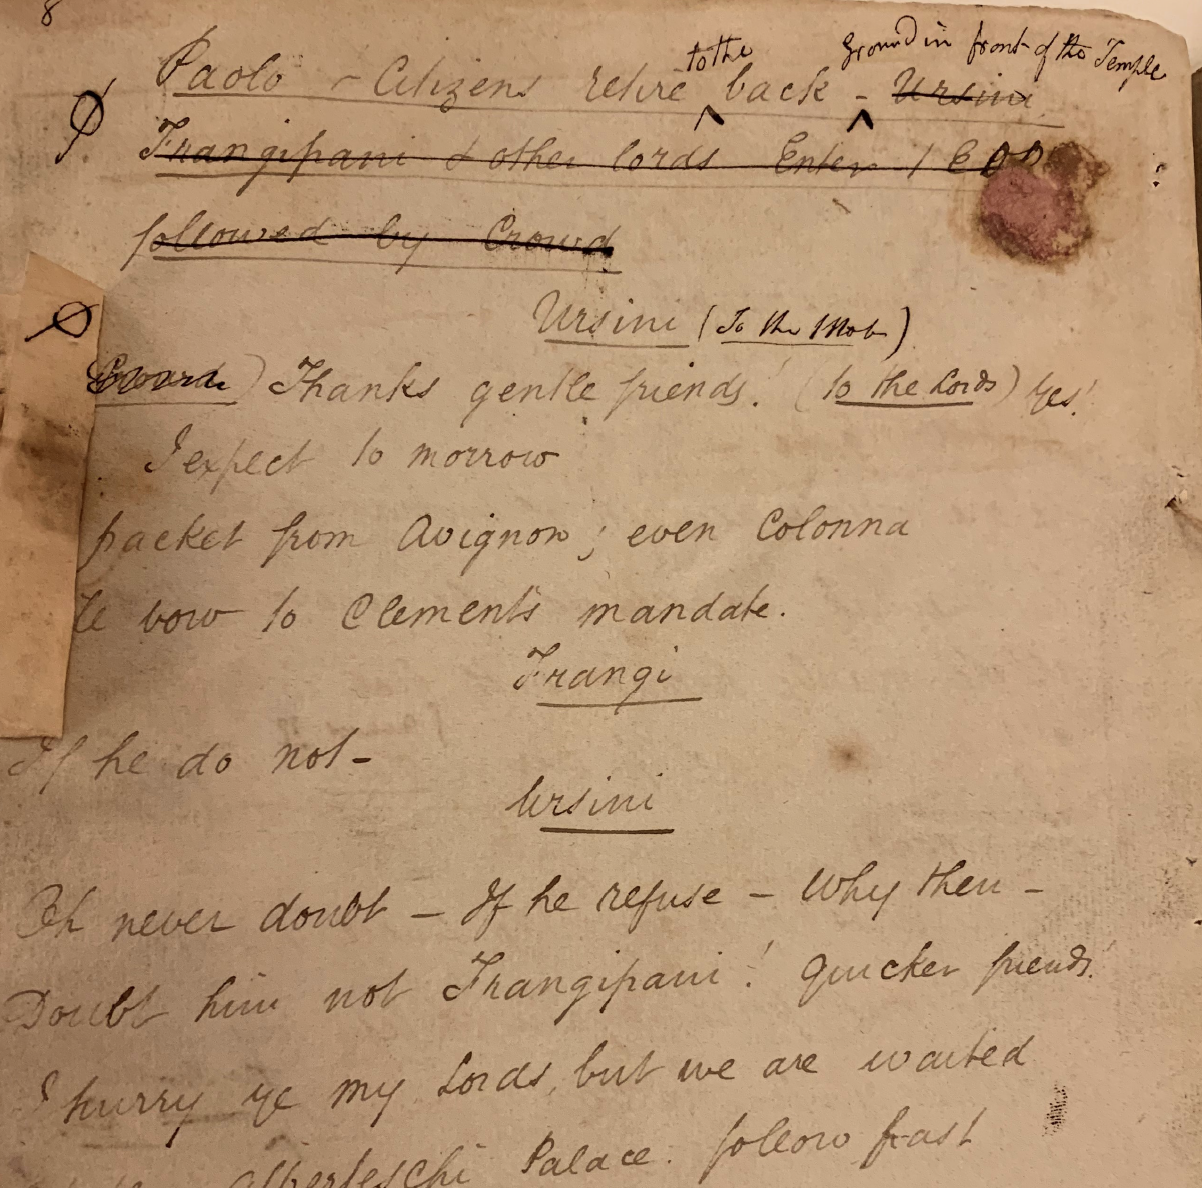 8
to the ground in front of the Temple
Paolo - Citizens retire back - Ursini
Frangipani & other lords Enter
followed by Crowd
Ursini (To the Mob)
) Thanks gentle friends! (to the Lords) Yes!
I expect to morrow
packet from Avignon; even Colonna
bow to Clement's mandate.
Frangi
If he do not-
Ursini
Oh never doubt - If he refuse - Why then -
Doubt him not Frangipani! Quicker friends!
I hurry ye my Lords, but we are waited
Alberteschi Palace. follow fast